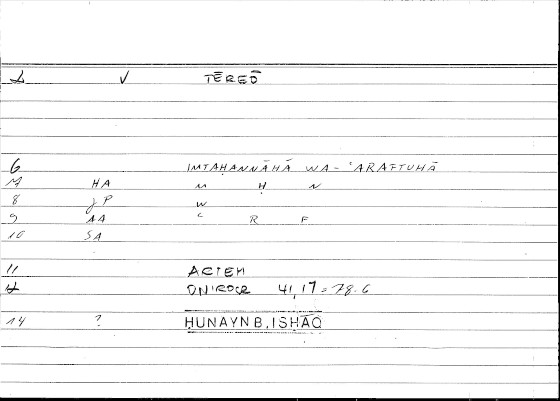 ✓ TĒREŌ
6 IMTAḤANNĀHĀ WA-ʿARAFTUHĀ
HA M Ḥ N
8 JP W
9 AA ʿ R F
10 SA
11 ACTEM
ONIROCR 41,17 = 78.6
14 ? ḤUNAYN B. ISḤĀQ